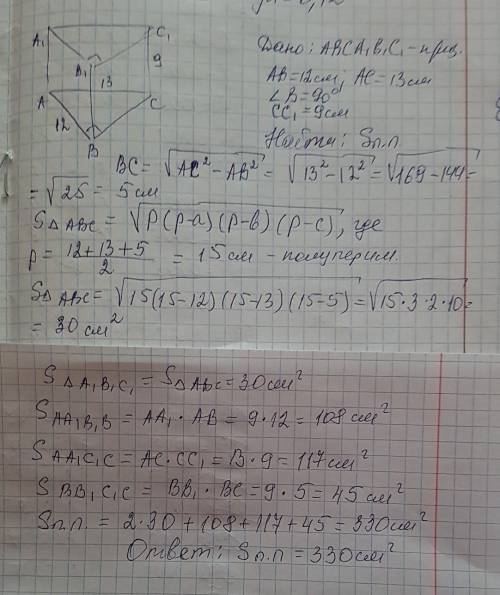 A₁
C₁
B₁
9
13
A
C
12
B
Дано: ABCA₁B₁C₁ - приз.
AB=12см, AC=13см
∠B=90°
CC₁=9см
Найти: Sп.п.
BC = √AC² - AB² = √13² - 12² = √169 - 144 =
= √25 = 5 см
S△ABC = √P(P-a)(P-b)(P-c), где
P = (12+13+5)/2 = 15 см - полуперим.
S△ABC = √15(15-12)(15-13)(15-5) = √15·3·2·10 =
= 30 см²
S△A₁B₁C₁ = S△ABC = 30 см²
SAA₁B₁B = AA₁·AB = 9·12 = 108 см²
SAA₁C₁C = AC·CC₁ = 13·9 = 117 см²
SBB₁C₁C = BB₁·BC = 9·5 = 45 см²
Sп.п. = 2·30 + 108 + 117 + 45 = 330 см²
Ответ: Sп.п = 330 см²